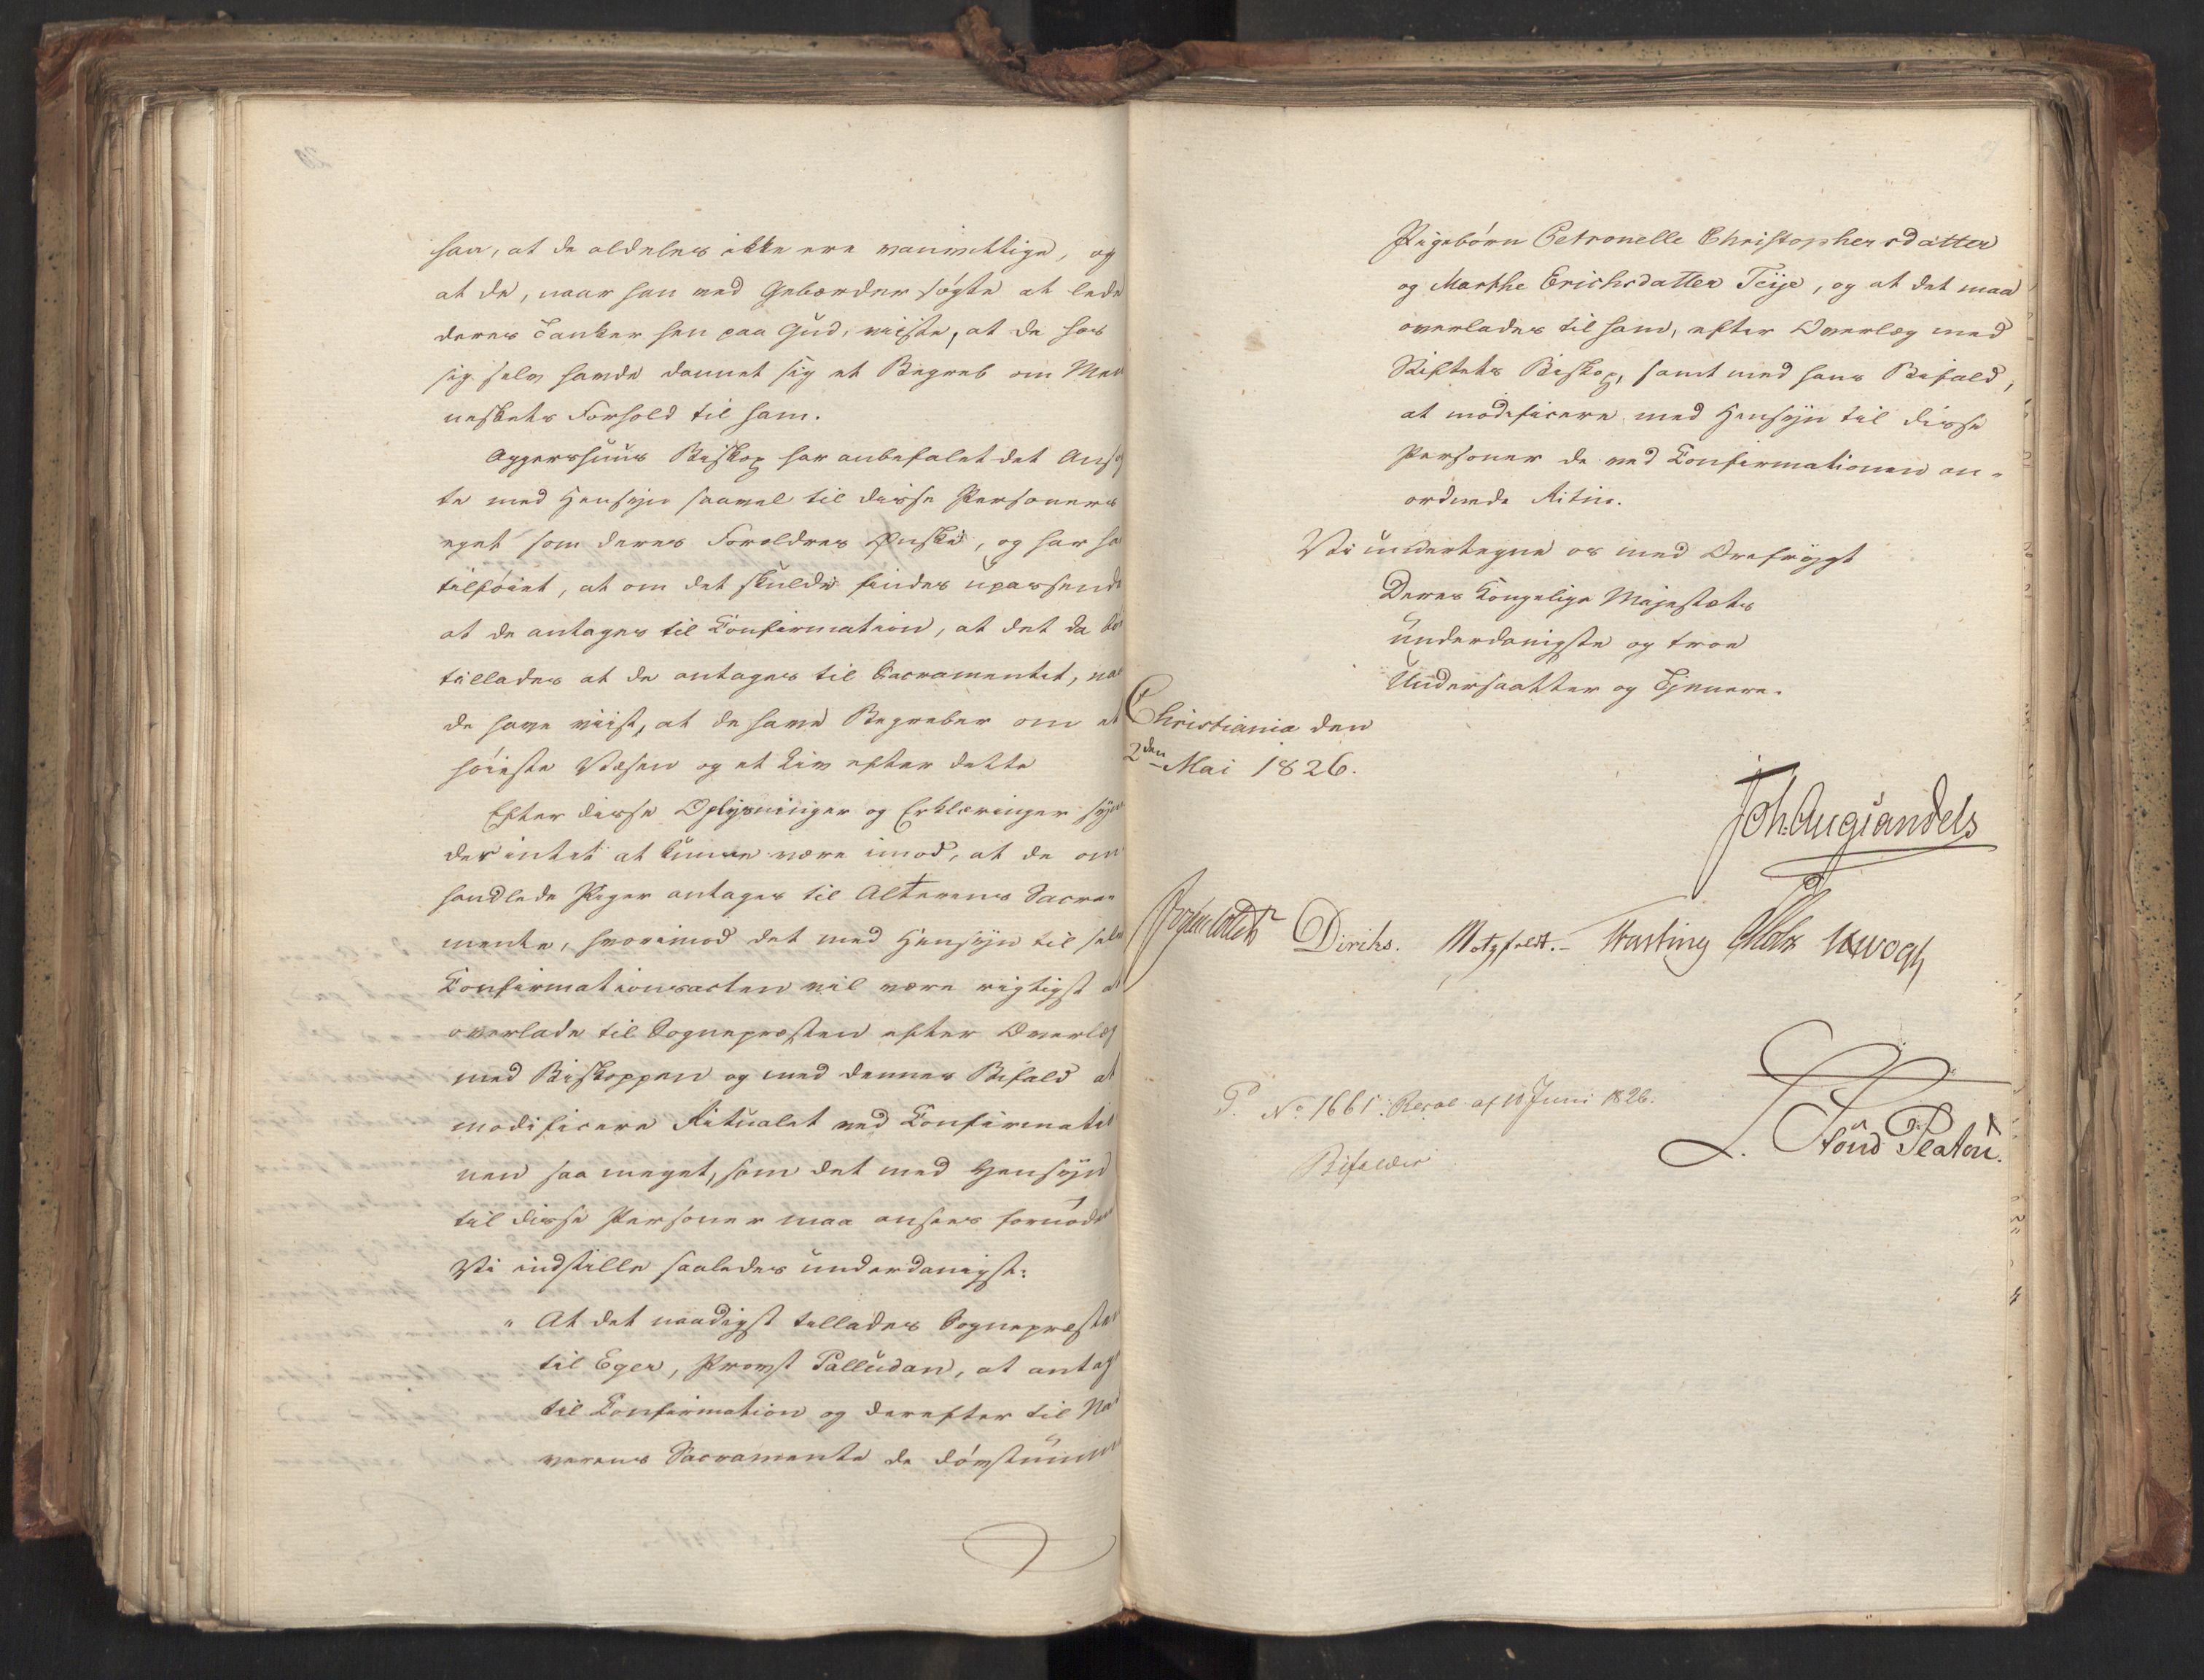 han, at de aldeles ikke ere vanvittige, og
at de, naar han med Gebærder søgte at lede
deres Tanker hen paa Gud, viiste, at de hos
sig selv havde dannet sig et Begreb om Men
neskets Forhold til ham.
Aggershuus Biskop har anbefalet det Ansøg
te med Hensyn saavel til disse Personers
eget som deres Forældres Ønske, og har ha
tilføiet, at om det skulde findes upassende
at de antages til Confirmation, at det da bø
tillades at de antages til Sacramentet, naa
de have viist, at de have Begreber om et
høieste Væsen og et Liv efter dette
Efter disse Oplysninger og Erklæringer syn
der intet at kunne være imod, at de om
handlede Piger antages til Alterens Sacra-
mente, hvorimod det med Hensyn til selve
Confirmationsacten vil være rigtigst at
overlade til Sognepræsten efter Overlæg
med Biskoppen og med dennes Bifald at
modificere Ritualet ved Confirmatio
nen saa meget, som det med Hensyn
til disse Personer maa ansees fornøden
Vi indstille saaledes underdanigst:
" At det naadigst tillades Sognepræsten
til Eger, Provst Palludan, at antage
til Confirmation og derefter til Na
verens Sacramente de døvstumme
Pigebørn Petronelle Christophersdatter
og Marthe Erichsdatter Teije, og at det maa
overlades til ham, efter Overlæg med
Stiftets Biskop, samt med hans Bifald,
at modificere med Hensyn til disse
Personer de ved Confirmationen an-
ordnede Ritus.
Vi undertegne os med Ærefrygt
Deres Kongelige Majestæts
underdanigste og troe
Undersaatter og Tjenere.
Christiania den
2den Mai 1826.
Joh. Aug. Sandels
Diriks. Motzfeldt. Fasting Holst Krogh
P. No 1661. Resol. af 10 Juni 1826.
Bifaldes
L. Stoud Platou.